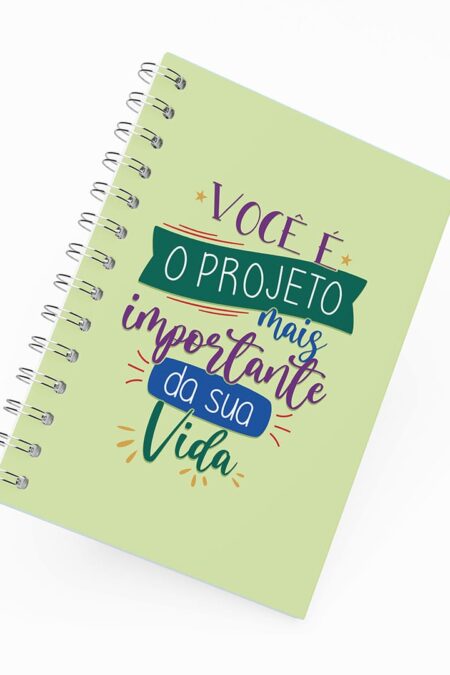 VOCÊ É
O PROJETO
mais
importante
da sua
Vida